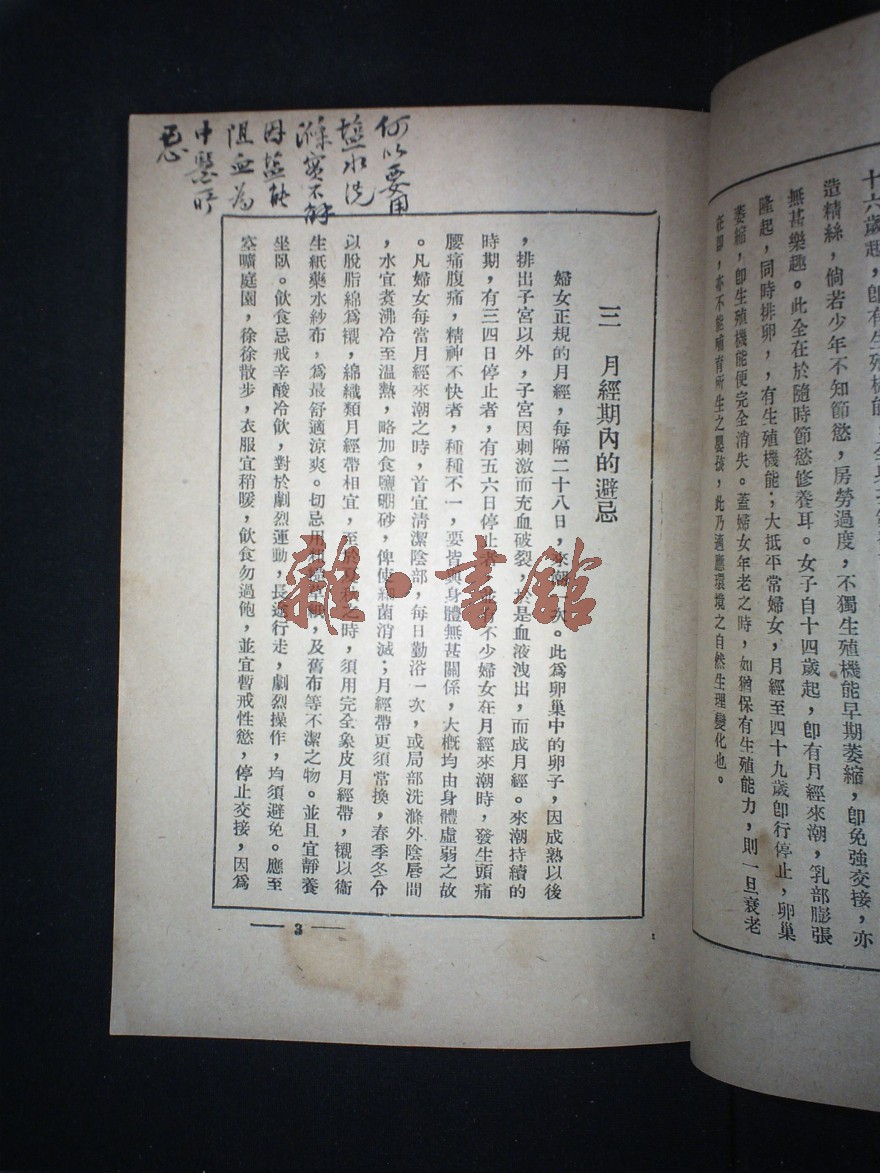 十六歲起，卽有生殖機能
造精絲，倘若少年不知節慾，房勞過度，不獨生殖機能早期萎縮，卽免強交接，亦
無甚樂趣。此全在於隨時節慾修養耳。女子自十四歲起，卽有月經來潮，乳部膨張
隆起，同時排卵，有生殖機能；大抵平常婦女，月經至四十九歲卽行停止，卵巢
萎縮，卽生殖機能便完全消失。蓋婦女年老之時，如猶保有生殖能力，則一旦衰老
在卽，亦不能哺育所生之嬰孩，此乃適應環境之自然生理變化也。
三　月經期內的避忌
婦女正規的月經，每隔二十八日，來潮一次。此爲卵巢中的卵子，因成熟以後
，排出子宮以外，子宮因刺激而充血破裂，於是血液洩出，而成月經。來潮持續的
時期，有三四日停止者，有五六日停止者，有不少婦女在月經來潮時，發生頭痛
腰痛腹痛，精神不快者，種種不一，要皆與身體無甚關係，大概均由身體虛弱之故
。凡婦女每當月經來潮之時，首宜清潔陰部，每日勤浴一次，或局部洗滌外陰唇間
，水宜煮沸冷至温熱，略加食鹽硼砂，俾使細菌消滅；月經帶更須常換，春季冬令
以脫脂綿爲襯，綿織類月經帶相宜，至於夏秋之時，須用完全象皮月經帶，襯以衞
生紙藥水紗布，爲最舒適涼爽。切忌用粗糙草紙，及舊布等不潔之物。並且宜靜養
坐臥。飲食忌戒辛酸冷飲，對於劇烈運動，長途行走，劇烈操作，均須避免。應至
空曠庭園，徐徐散步，衣服宜稍暖，飲食勿過飽，並宜暫戒性慾，停止交接，因爲
3
何以要用
鹽水洗
滌實不解
因鹽能
阻血為
中醫所
惡
雜·書館